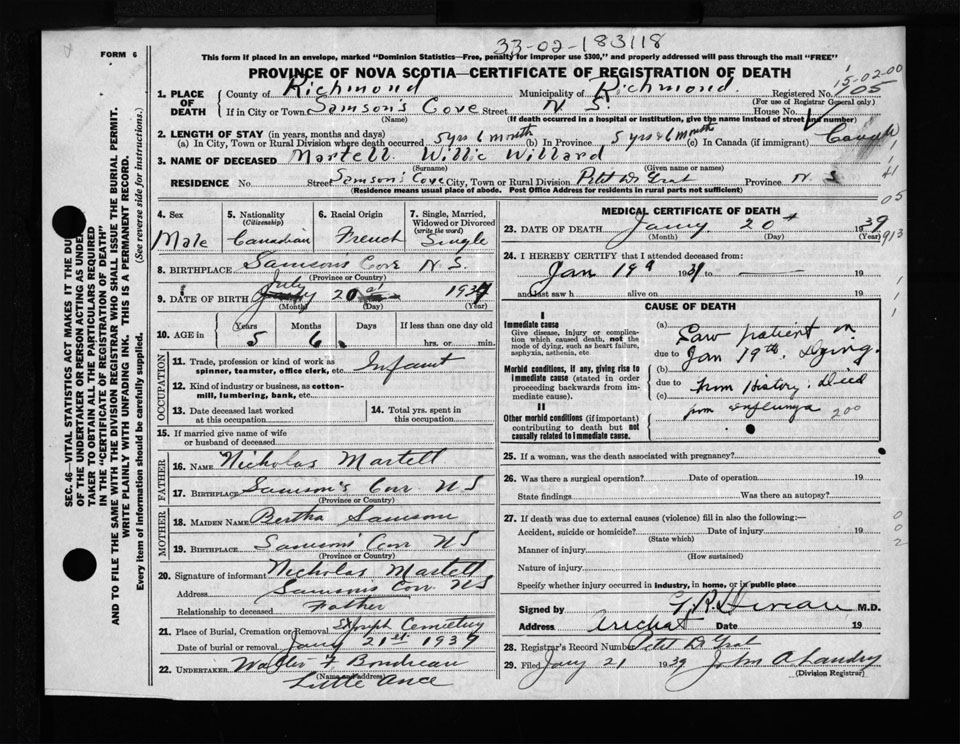 33-02-183118
FORM 6
This form if placed in an envelope, marked "Dominion Statistics—Free, penalty for improper use $300," and properly addressed will pass through the mail "FREE"
PROVINCE OF NOVA SCOTIA—CERTIFICATE OF REGISTRATION OF DEATH
15-02-00
1. PLACE OF DEATH County of Richmond Municipality of Richmond Registered No. 05
(For use of Registrar General only)
If in City or Town Samson's Cove Street N S. House No.
(Name) (If death occurred in a hospital or institution, give the name instead of street and number)
2. LENGTH OF STAY (in years, months and days)
(a) In City, Town or Rural Division where death occurred 5 yrs 6 month (b) In Province 5 yrs 6 months (c) In Canada (if immigrant)
3. NAME OF DECEASED Martell Willie Willard
(Surname) (Given name or names)
RESIDENCE No. Street Samson's Cove City, Town or Rural Division Petit De Grat Province N S
(Residence means usual place of abode. Post Office Address for residents in rural parts not sufficient)
4. Sex Male
5. Nationality (Citizenship) Canadian
6. Racial Origin French
7. Single, Married, Widowed or Divorced (write the word) Single
8. BIRTHPLACE Samsons Cove N S.
(Province or Country)
9. DATE OF BIRTH July 20 193
(Month) (Day) (Year)
10. AGE in Years 5 Months 6 Days If less than one day old hrs. or min.
OCCUPATION
11. Trade, profession or kind of work as spinner, teamster, office clerk, etc. Infant
12. Kind of industry or business, as cotton-mill, lumbering, bank, etc.
13. Date deceased last worked at this occupation
14. Total yrs. spent in this occupation
15. If married give name of wife or husband of deceased
FATHER
16. NAME Nicholas Martell
17. BIRTHPLACE Samson's Cove N S
(Province or Country)
MOTHER
18. MAIDEN NAME Bertha Samson
19. BIRTHPLACE Samsons Cove N S
(Province or Country)
20. Signature of informant Nicholas Martell
Address Samson's Cove N S
Relationship to deceased Father
21. Place of Burial, Cremation or Removal St Joseph Cemetery
Date of burial or removal Jany 21st 1939
22. UNDERTAKER Walter F Boudreau
(Name and Address)
Little Ance
MEDICAL CERTIFICATE OF DEATH
23. DATE OF DEATH Jany 20 1939
(Month) (Day) (Year)
24. I HEREBY CERTIFY that I attended deceased from:
Jan 19 to 19
and last saw h alive on 19
CAUSE OF DEATH
I
Immediate cause
Give disease, injury or complication which caused death, not the mode of dying, such as heart failure, asphyxia, asthenia, etc
Morbid conditions, if any, giving rise to immediate cause (stated in order proceeding backwards from immediate cause).
II
Other morbid conditions (if important) contributing to death but not causally related to immediate cause.
(a) Saw patient on
due to Jan 19th. Dying.
(b)
due to From History. Died
(c) from influenza 200
25. If a woman, was the death associated with pregnancy?
26. Was there a surgical operation? Date of operation 19
State findings Was there an autopsy?
27. If death was due to external causes (violence) fill in also the following:—
Accident, suicide or homicide? Date of injury 19
(State which)
Manner of injury
(How sustained)
Nature of injury
Specify whether injury occurred in industry, in home, or in public place
Signed by M.D.
Address Arichat Date 19
28. Registrar's Record Number Petit D Grat
29. Filed Jany 21 1939 John A Landry
(Division Registrar)
SEC. 46—VITAL STATISTICS ACT MAKES IT THE DUTY
OF THE UNDERTAKER OR PERSON ACTING AS UNDERTAKER
TO OBTAIN ALL THE PARTICULARS REQUIRED
IN THE "CERTIFICATE OF REGISTRATION OF DEATH"
AND TO FILE THE SAME WITH THE DIVISION REGISTRAR WHO SHALL ISSUE THE BURIAL PERMIT.
WRITE PLAINLY WITH UNFADING INK. THIS IS A PERMANENT RECORD.
Every item of information should be carefully supplied. (See reverse side for instructions.)